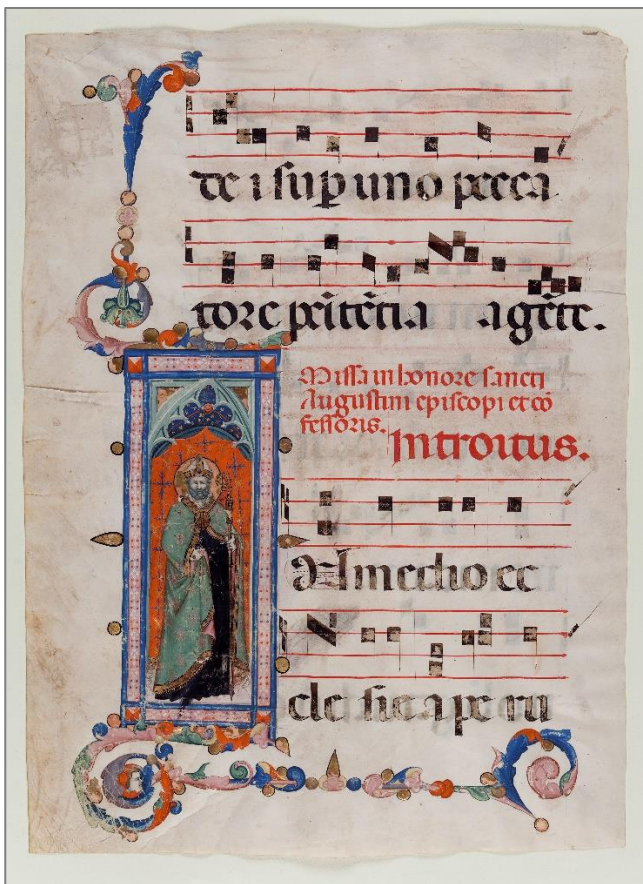 de i suꝑ uno pecca
tore pēitētia agēte.
Missa in honore sancti
Augustini episcopi et cō
fessoris.
Introitus.
N medio ec
clesie aperu